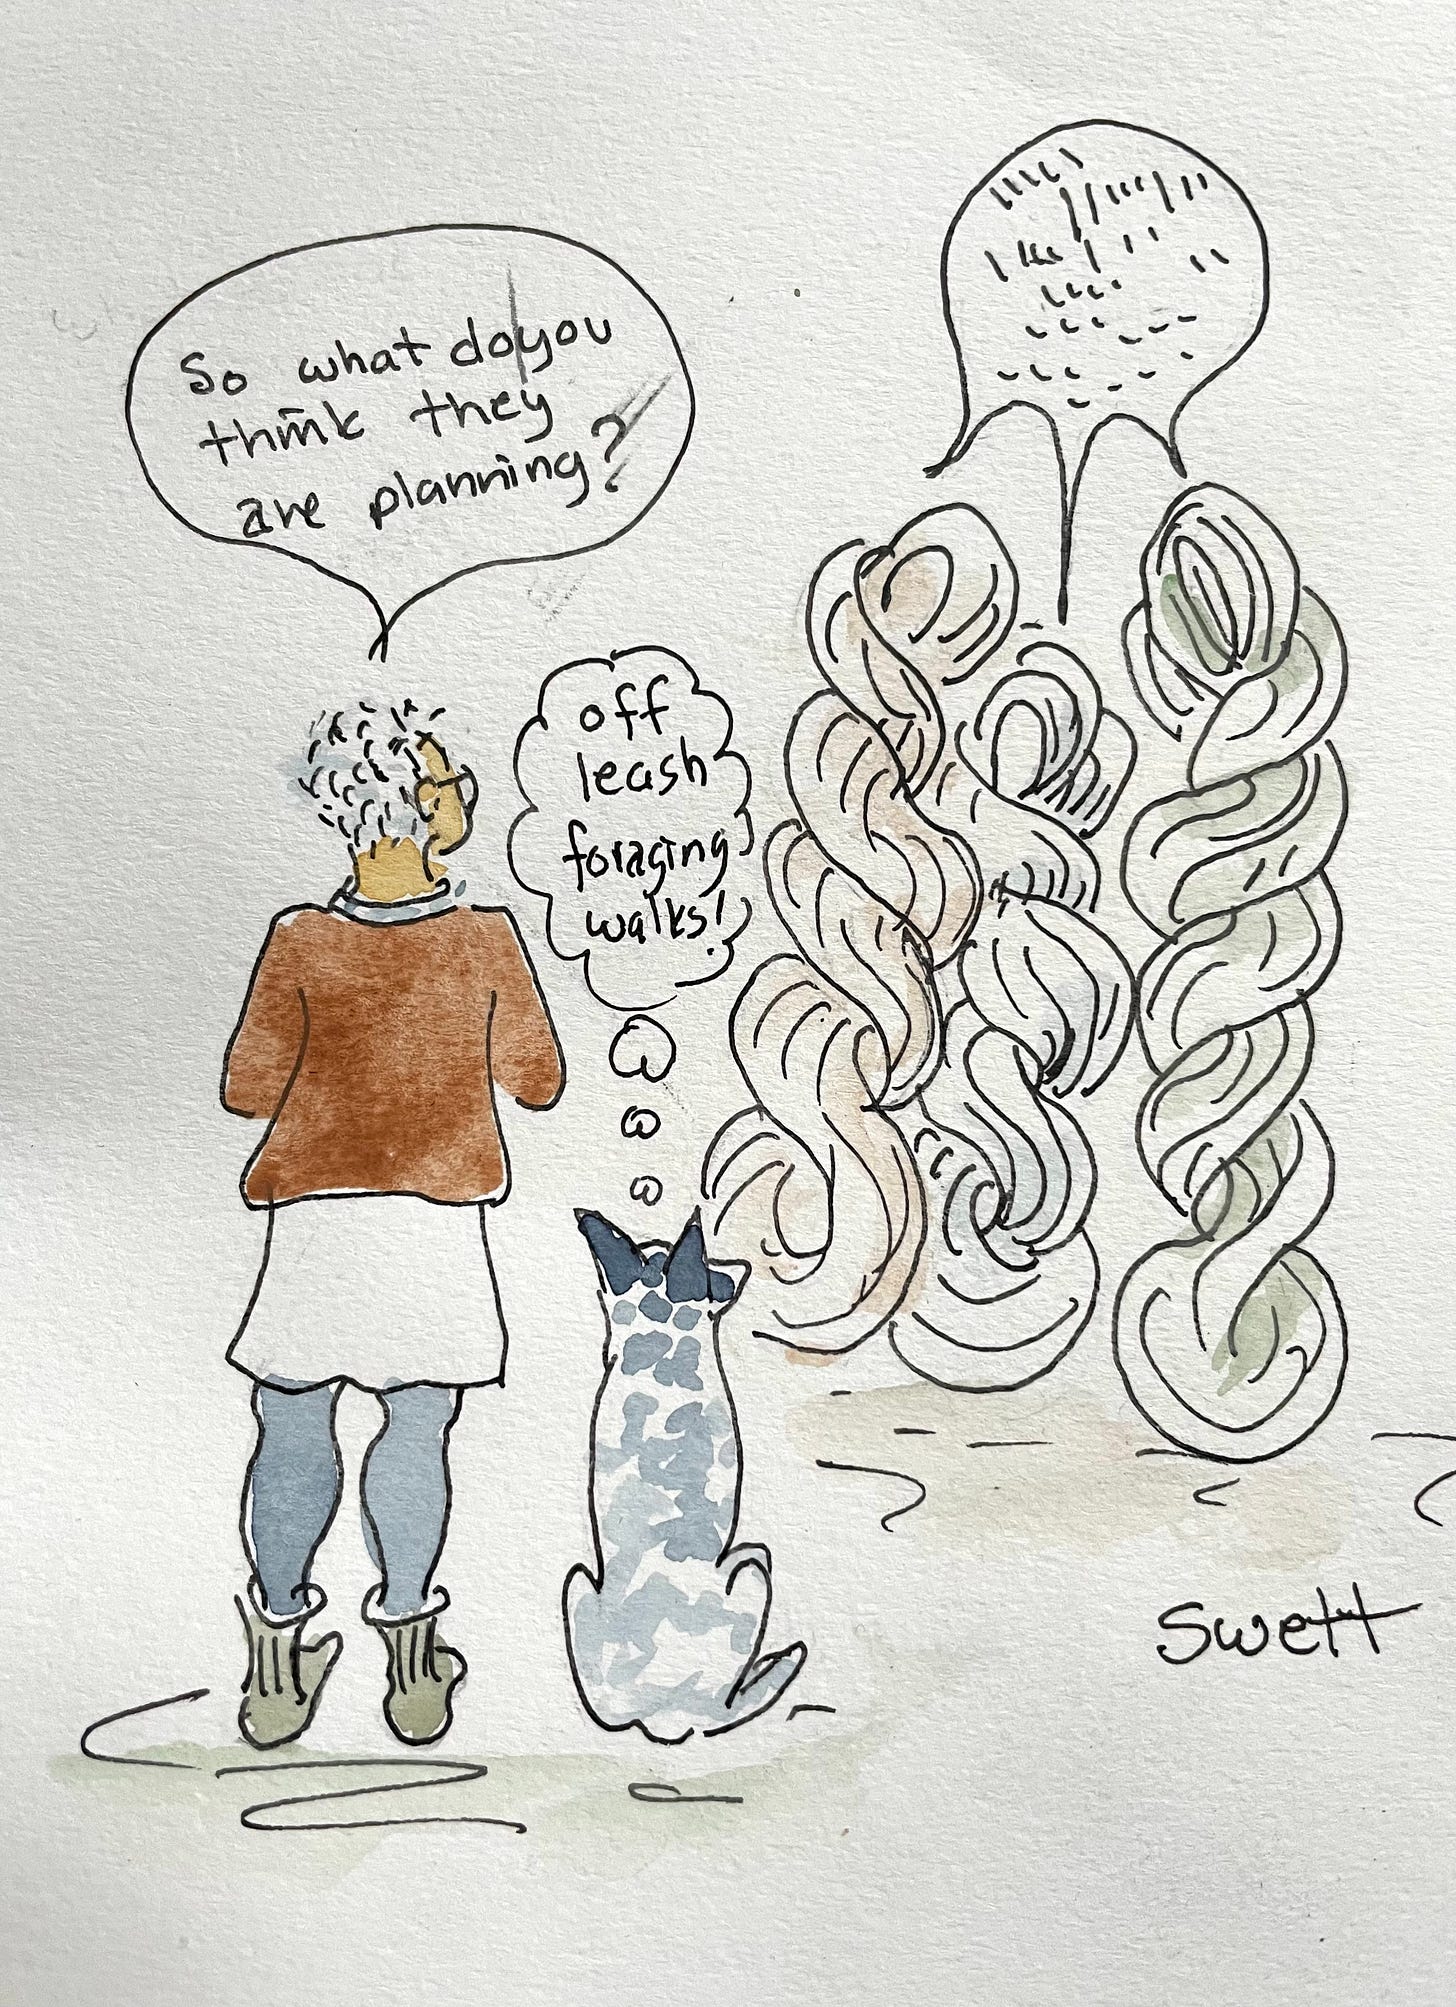 So what do you
think they
are planning?
off
leash
foraging
walks!
Swett